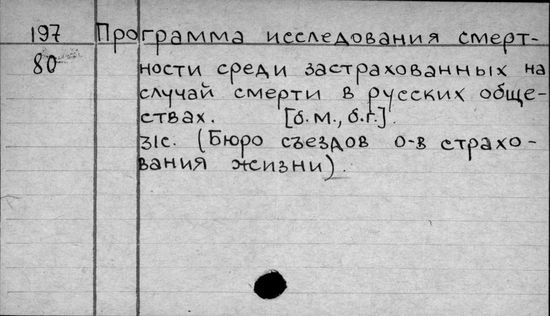 197 Программа исследования смерт-
80 ности среди застрахованных на
случай смерти в русских обще-
ствах. [б.м., б.г.]
31с. (Бюро съездов о-в страхо-
вания жизни).